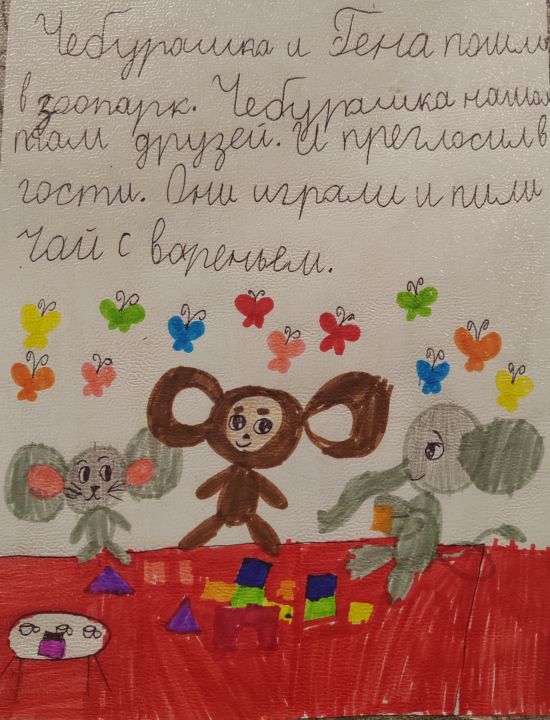 Чебурашка и Гена пошли
в зоопарк. Чебурашка нашол
там друзей. И преглосил в
гости. Они играли и пили
чай с вареньем.